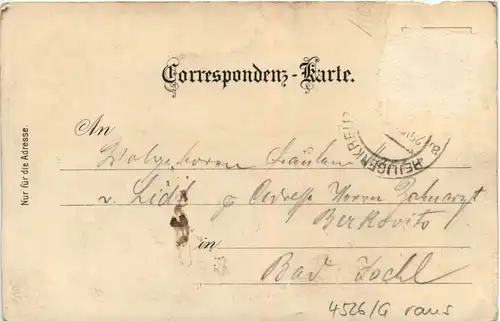 Correspondenz-Karte.
Nur für die Adresse.
An
Wolgeboren Fräulein
HEILIGENKREUZ
v. Lidl p Adresse Herrn Zahnarzt
Berkovits
in
Bad Ischl
4526/G raus